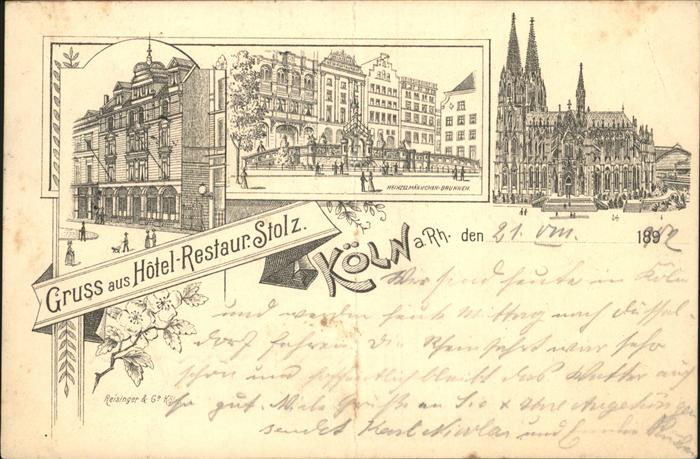 HEINZELMÄNNCHEN-BRUNNEN.
Gruss aus Hôtel-Restaur. Stolz.
KÖLN a. Rh. den 21. VIII. 189
Wir sind heute in Köln
und werden heut Mittag nach Düssel-
dorf fahren. Die Rheinfahrt war sehr
schön und hoffentlich bleibt das Wetter auch
so gut. Viele Grüße an Sie & Ihre Angehörigen
sendet Karl Nicolas und
Reisinger & Co Köln